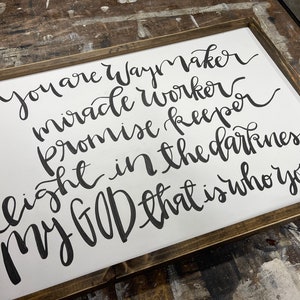 you are way maker
miracle worker
promise keeper
light in the darkness
my GOD that is who yo